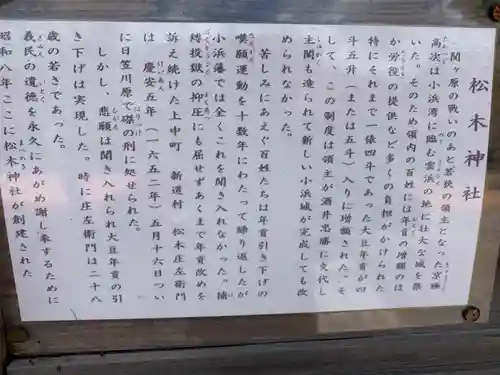 松木神社
関ヶ原の戦いのあと若狭の領主となった京極
高次は小浜湾に臨む雲浜の地に壮大な城を築
いた。そのため領内の百姓には年貢の増額のほ
か労役の提供など多くの負担がかけられた
特にそれまで一俵四斗であった大豆年貢が四
斗五升（または五斗）入りに増徴された。そ
して、この制度は領主が酒井忠勝に交代し
主閣も造られて新しい小浜城が完成しても改
められなかった。
苦しみにあえぐ百姓たちは年貢引き下げの
嘆願運動を十数年にわたって繰り返したが
小浜藩では全くこれを聞き入れなかった。捕
縛投獄の抑圧にも屈せずあくまで年貢改めを
訴え続けた上中町 新道村 松木庄左衛門
は 慶安五年（一六五二年）五月十六日つい
に日笠川原で磔の刑に処せられた。
しかし、悲願は聞き入れられ大豆年貢の引
き下げは実現した。時に庄左衛門は二十八
歳の若さであった。
義民の遺徳を永久にあがめ謝し奉するために
昭和八年ここに松木神社が創建された